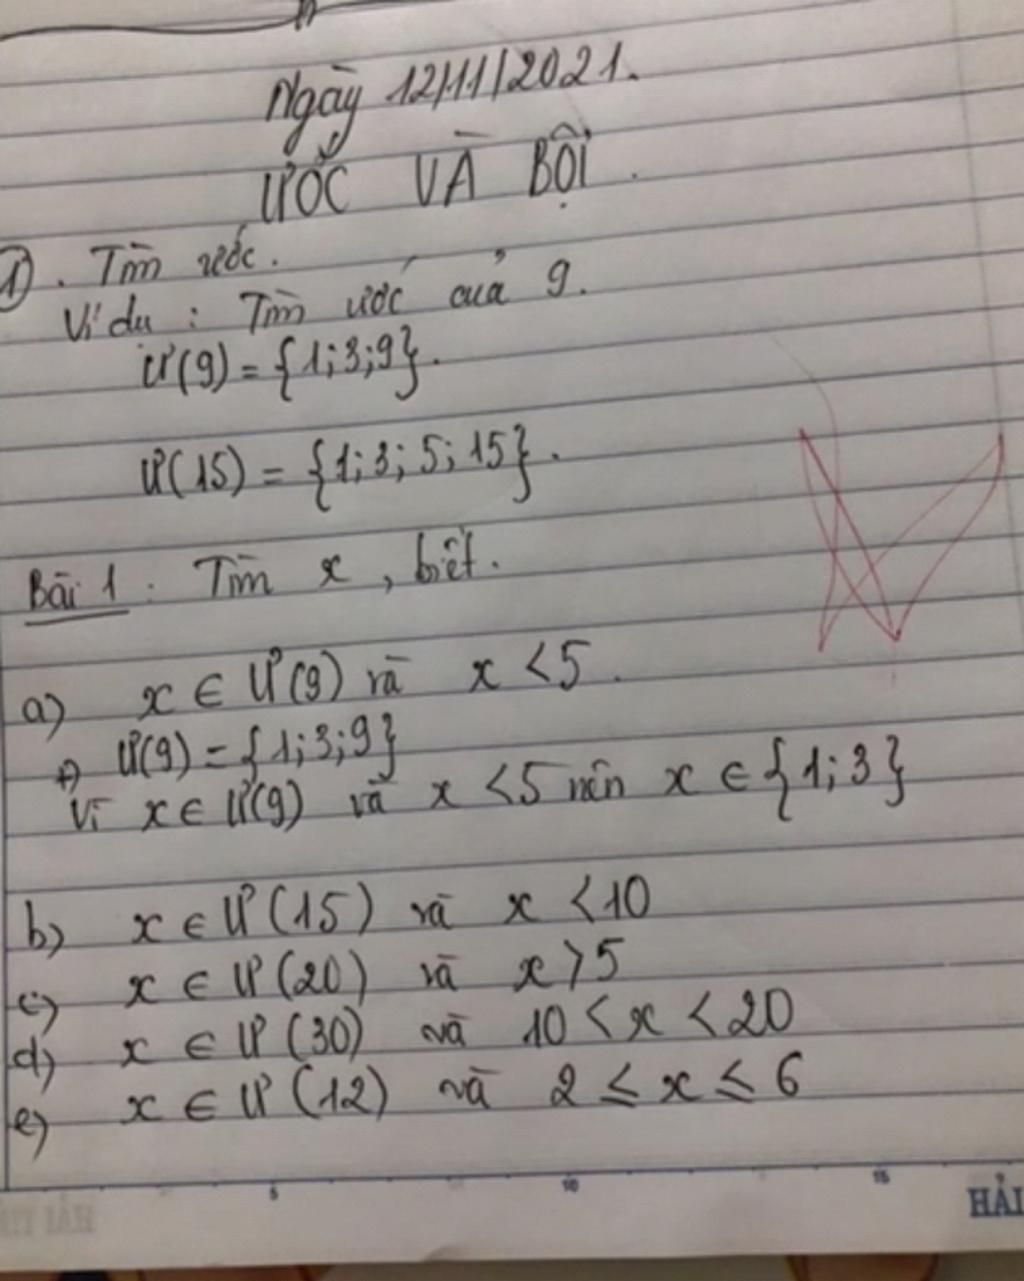 Ngày 12/11/2021.
ƯỚC VÀ BỘI.
1). Tìm ước.
Ví dụ : Tìm ước của 9.
Ư(9) = {1;3;9}.
Ư(15) = {1;3;5;15}.
Bài 1 : Tìm x, biết.
a) x ∈ Ư(9) và x < 5.
+) Ư(9) = {1;3;9}
Vì x ∈ Ư(9) và x < 5 nên x ∈ {1;3}
b) x ∈ Ư(15) và x < 10
c) x ∈ Ư(20) và x > 5
d) x ∈ Ư(30) và 10 < x < 20
e) x ∈ Ư(12) và 2 ≤ x ≤ 6
5 10 15
HẢI